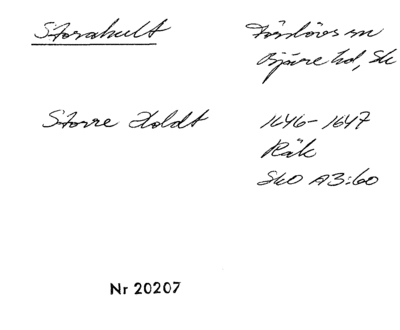 Storahult
Förslövs sn
Bjäre hd, Sk
Storre Holdt
1646-1647
Räk
SkO A3:60
Nr 20207